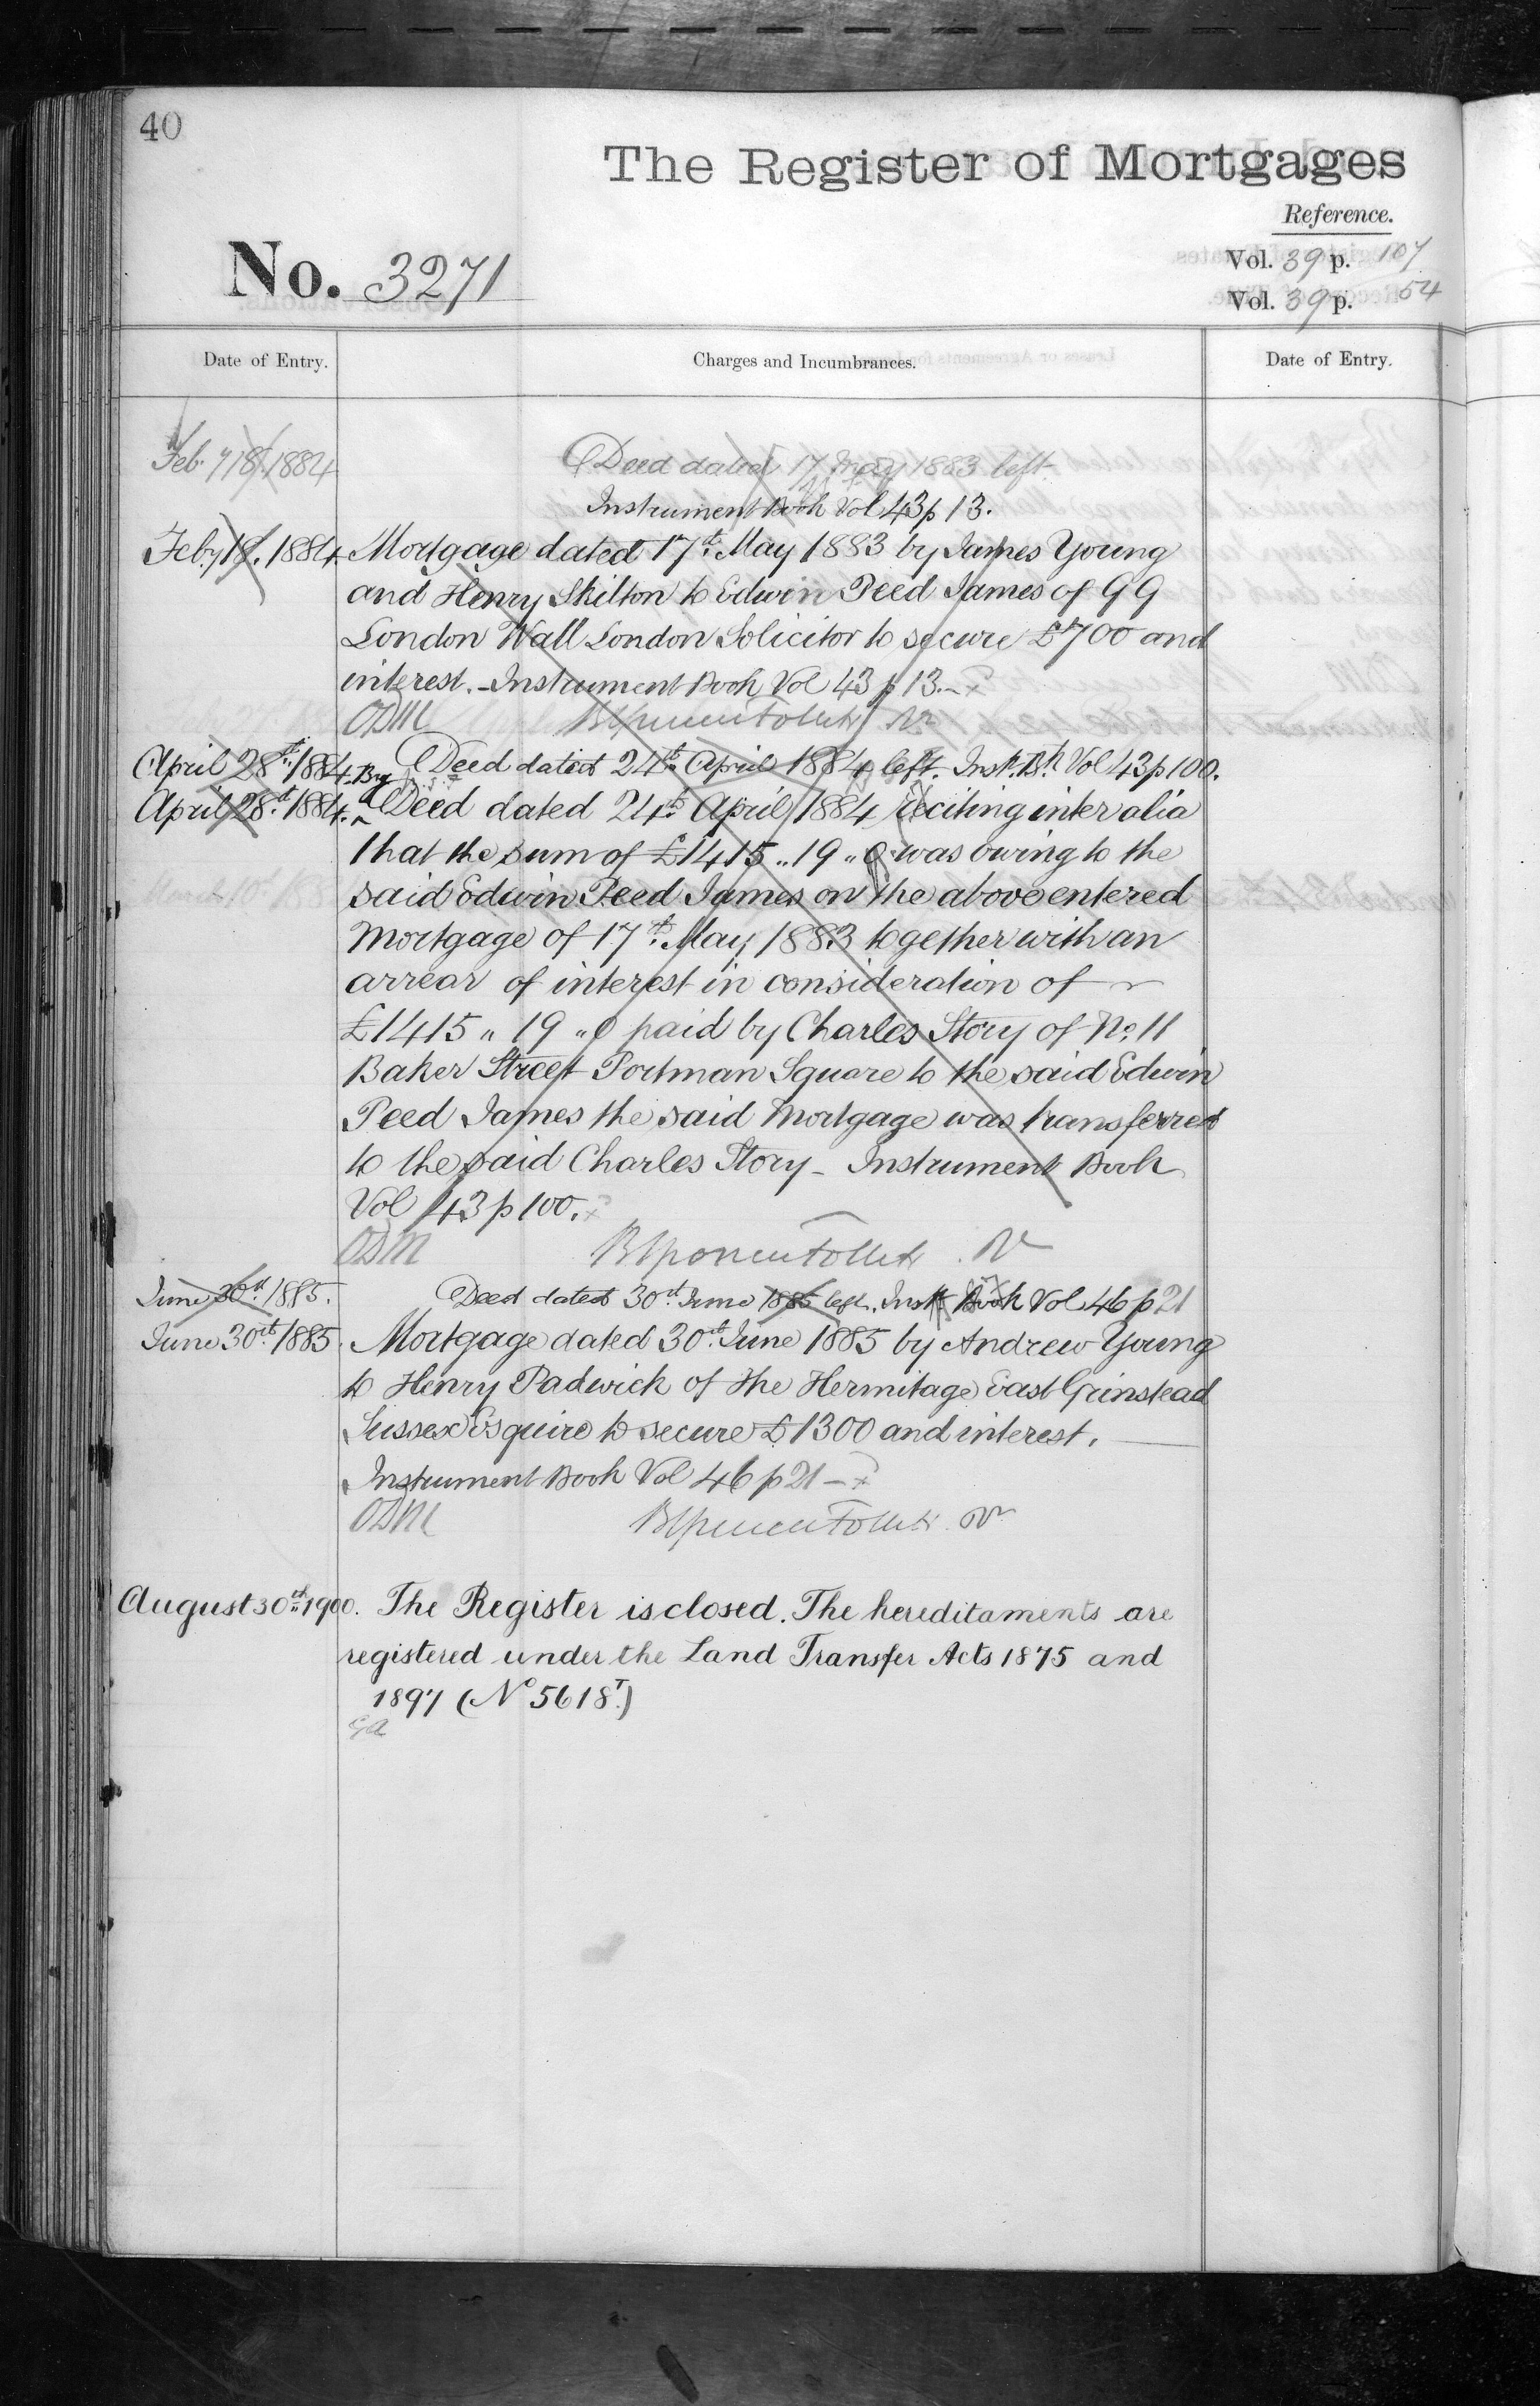 40
The Register of Mortgages
Reference.
No. 3271
Vol. 39 p. 107
Vol. 39 p. 54
Date of Entry.
Charges and Incumbrances.
Date of Entry.
Feb. 18. 1884
Deed dated 17 May 1883 left
Instrument Book Vol 43 p 13.
Feby 18. 1884. Mortgage dated 17th. May 1883 by James Young
and Henry Skilton to Edwin Peed James of 99
London Wall London Solicitor to secure £700 and
interest. - Instrument Book Vol 43 p 13. -
ODM
April 28th. 1884. Deed dated 24th April 1884 left. Inst. Bk Vol 43 p 100.
April 28th. 1884. By Deed dated 24th. April 1884 reciting inter alia
that the sum of £1415 " 19 " 0 was owing to the
said Edwin Peed James on the above entered
Mortgage of 17th. May 1883 together with an
arrear of interest in consideration of
£1415 " 19 " 0 paid by Charles Story of No. 11
Baker Street Portman Square to the said Edwin
Peed James the said Mortgage was transferred
to the said Charles Story - Instrument Book
Vol 43 p 100.
ODM
June 30th 1885.
Deed dated 30th June 1885 left. Inst Book Vol 46 p 21
June 30th 1885. Mortgage dated 30th June 1885 by Andrew Young
to Henry Padwick of The Hermitage East Grinstead
Sussex Esquire to secure £1300 and interest.
Instrument Book Vol 46 p 21 -
ODM
August 30th 1900. The Register is closed. The hereditaments are
registered under the Land Transfer Acts 1875 and
1897 (No 5618T.)
GA